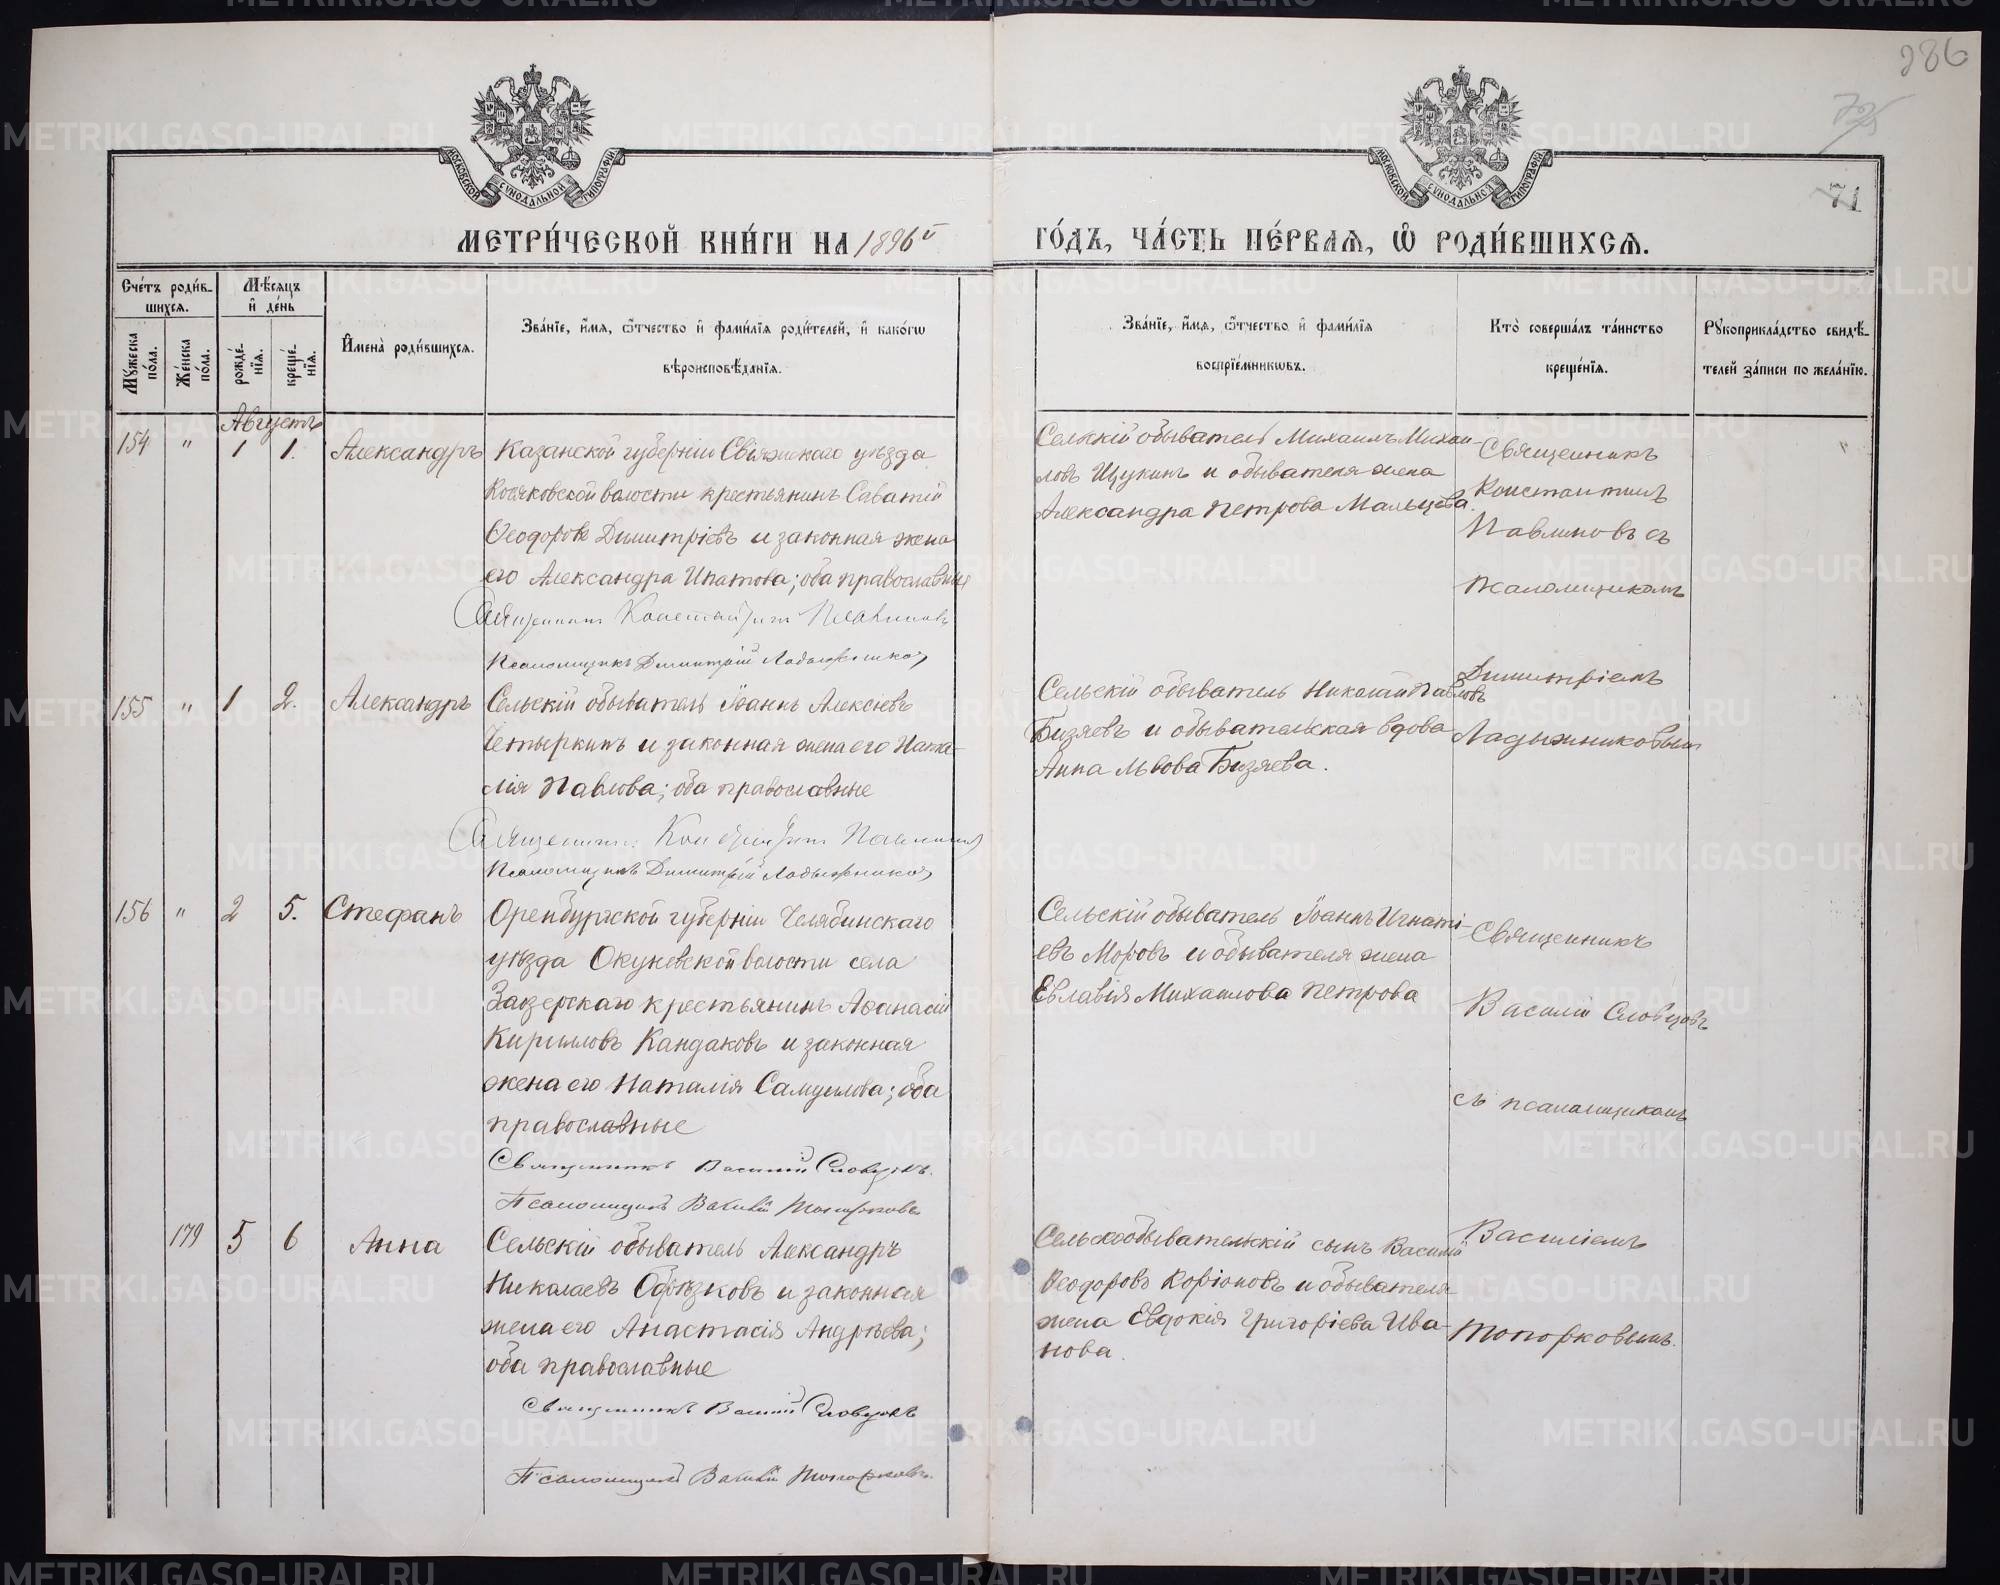 286
72
71
МОСКОВСКОЙ СѴНОДАЛЬНОЙ ТИПОГРАФІИ
МОСКОВСКОЙ СѴНОДАЛЬНОЙ ТИПОГРАФІИ
МЕТРИ́ЧЕСКОЙ КНИ́ГИ НА 1896й
ГО́ДЪ, ЧА́СТЬ ПЕ́РВАѦ, Ѡ҆ РОДИ́ВШИХСѦ.
Сче́тъ роди́в-
шихсѧ.
Мѣ́сѧцъ
и҆ де́нь
Мꙋ́жеска по́ла.
Же́нска по́ла.
рожде́-нїѧ.
креще́-нїѧ.
И҆мена̀ роди́вшихсѧ.
Зва́нїе, и҆́мѧ, ѻ҆́тчество и҆ фами́лїѧ роди́телей, и҆ како́гѡ
вѣроисповѣ́данїѧ.
Зва́нїе, и҆́мѧ, ѻ҆́тчество и҆ фами́лїѧ
воспрїе́мникѡвъ.
Кто̀ соверша́лъ та́инство
креще́нїѧ.
Рꙋкоприкла́дство свидѣ́-
телей за́писи по жела́нїю.
Августъ
154 " 1 1. Александръ
Казанской губерніи Свіяжскаго уѣзда
волости крестьянинъ Саватій
Ѳеодоровъ Димитріевъ и законная жена
его Александра Ипатова; оба православные
Священникъ Константинъ Павлиновъ
Псаломщикъ Димитрій Ладыжниковъ
Сельскій обыватель Михаилъ Михаи-
ловъ Щукинъ и обывателя жена
Александра Петрова Мальцева.
Священникъ
Константинъ
Павлиновъ съ
псаломщикомъ
Димитріемъ
Ладыжниковымъ
"
155 " 1 2. Александръ
Сельскій обыватель Іоаннъ Алексіевъ
Четыркинъ и законная жена его Ната-
лія Павлова; оба православные
Священникъ Константинъ Павлиновъ
Псаломщикъ Димитрій Ладыжниковъ
Сельскій обыватель Николай Павловъ
Бизяевъ и обывательская вдова
Анна Львова Бизяева.
156 " 2 5. Стефанъ
Оренбургской губерніи Челябинскаго
уѣзда Окуневской волости села
Заозерскаго крестьянинъ Аѳанасій
Кирилловъ Кандаковъ и законная
жена его Наталія Самуилова; оба
православные
Священникъ Василій Словцовъ.
Псаломщикъ Василій Топорковъ
Сельскій обыватель Іоаннъ Игнаті-
евъ Моровъ и обывателя жена
Евлавія Михаилова Петрова
Священникъ
Василій Словцовъ
съ псаломщикомъ
Василіемъ
Топорковымъ.
179 5 6 Анна
Сельскій обыватель Александръ
Николаевъ и законная
жена его Анастасія Андрѣева;
оба православные
Священникъ Василій Словцовъ
Псаломщикъ Василій Топорковъ.
Сельскообывательскій сынъ Василій
Ѳеодоровъ Коріоновъ и обывателя
жена Евдокія Григоріева Ива-
нова.
METRIKI.GASO-URAL.RU